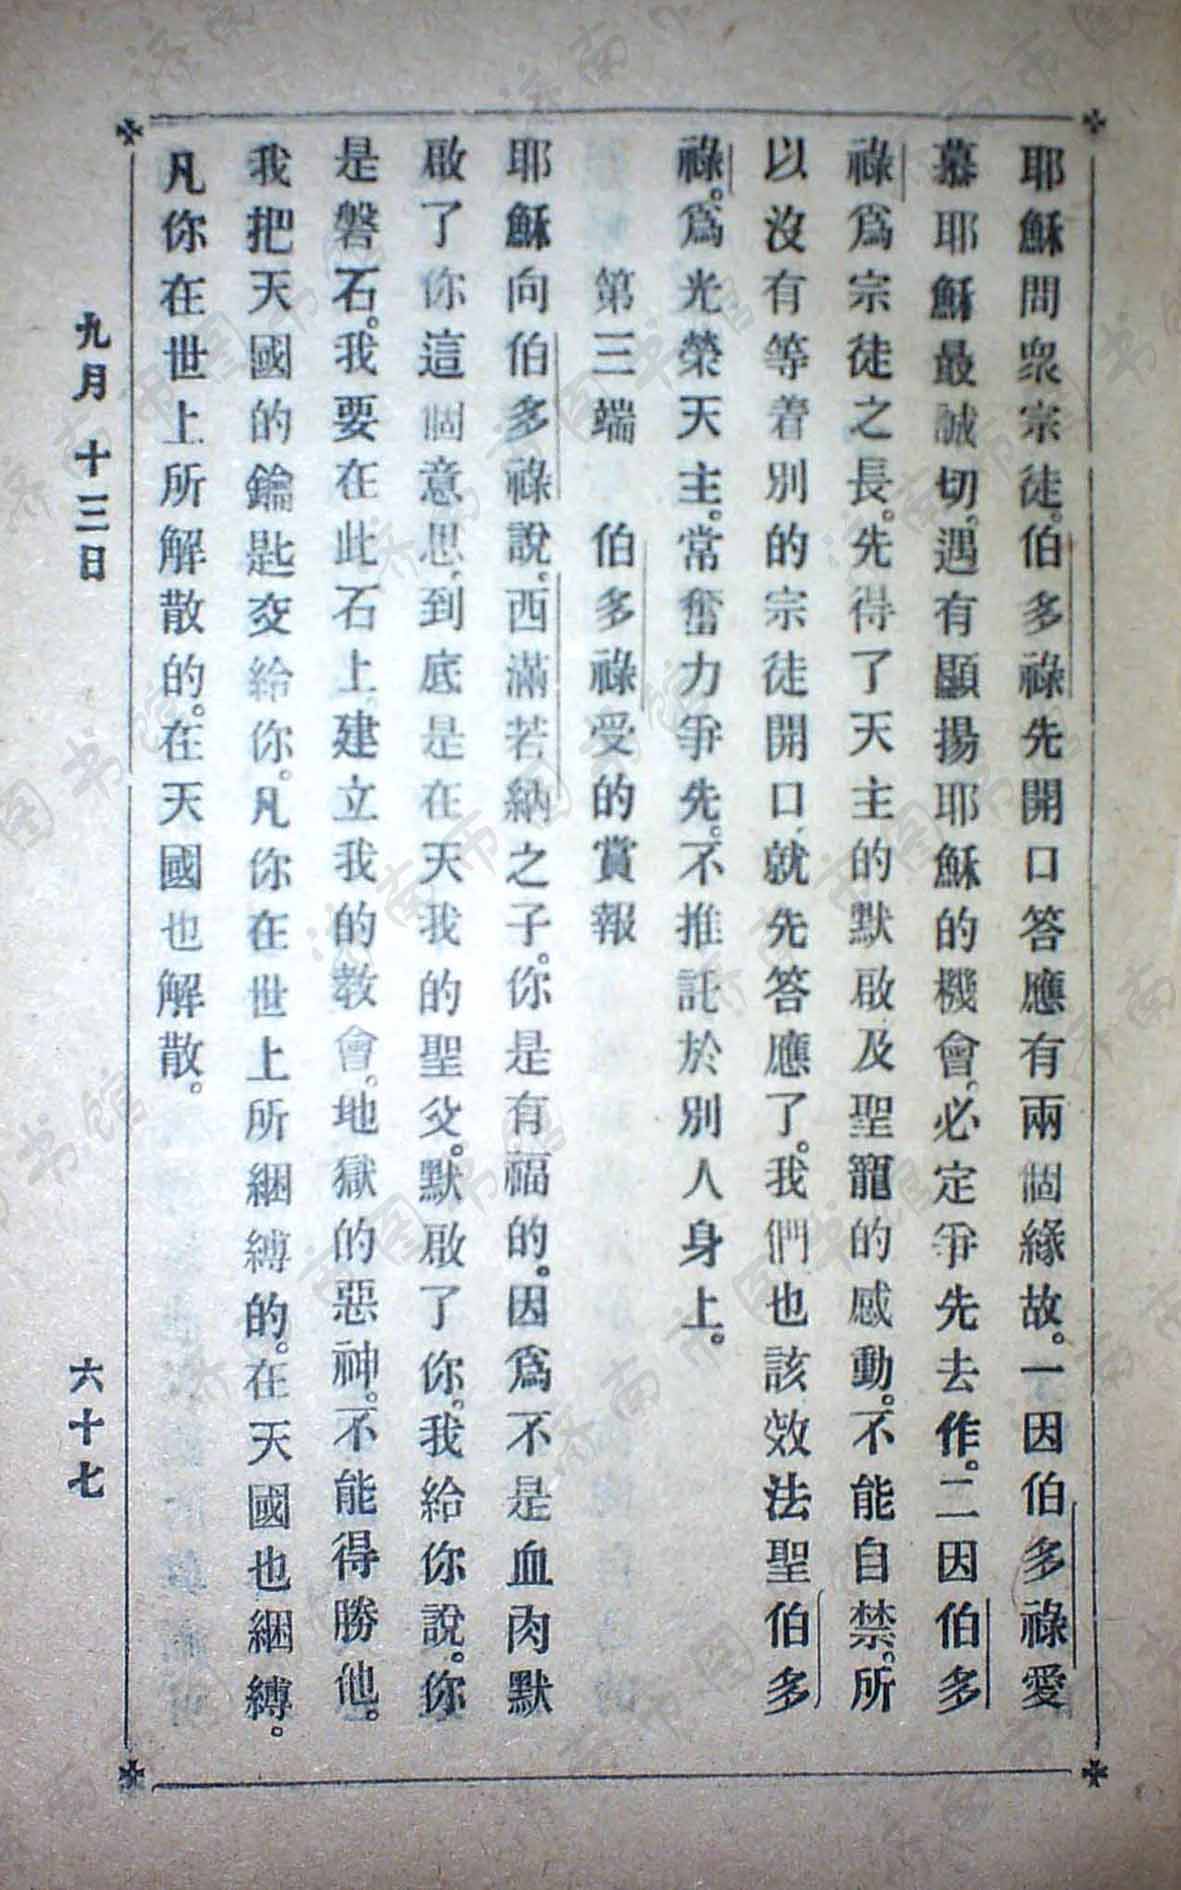 耶穌問衆宗徒。伯多祿先開口答應有兩個緣故。一因伯多祿愛
慕耶穌最誠切。遇有顯揚耶穌的機會。必定爭先去作。二因伯多
祿爲宗徒之長。先得了天主的默啟及聖寵的感動。不能自禁。所
以沒有等着別的宗徒開口、就先答應了。我們也該效法聖伯多
祿。爲光榮天主。常奮力爭先。不推託於別人身上。
第三端 伯多祿受的賞報
耶穌向伯多祿說。西滿若納之子。你是有福的。因爲不是血肉默
啟了你這個意思、到底是在天我的聖父。默啟了你。我給你說。你
是磐石。我要在此石上、建立我的教會。地獄的惡神。不能得勝他。
我把天國的鑰匙交給你。凡你在世上所綑縛的。在天國也綑縛。
凡你在世上所解散的。在天國也解散。
九月 十三日 六十七
济南市图书馆